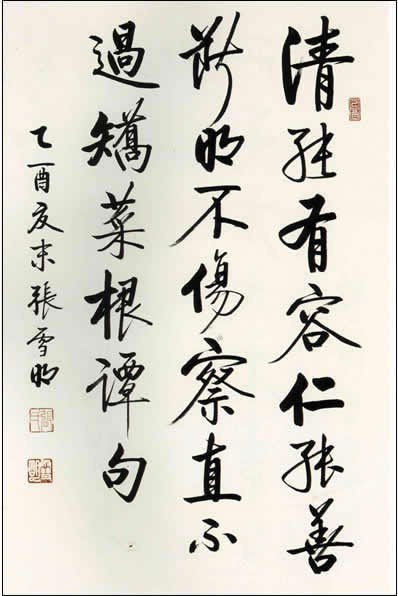 清能有容仁能善
斷明不傷察直不
過矯菜根譚句
乙酉夏末張雪明